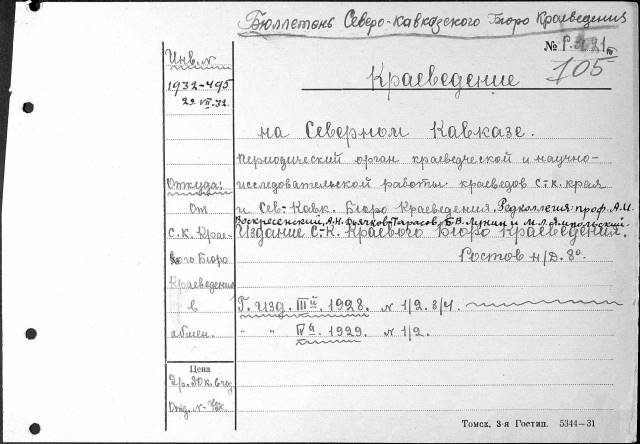 Бюллетень Северо-Кавказского Бюро Краеведения
№ Р. 3021 III
105
Инв. №
1932-495
22 VII. 32.
Краеведение
на Северном Кавказе.
периодический орган краеведческой и научно-
исследовательской работы краеведов с.-к. края
и Сев.-Кавк. Бюро Краеведения. Редколлегия: проф. А.И.
Воскресенский, А.Н. Дьяков-Тарасов, Б.В. Лунин и
Издание С.-К. Краевого Бюро Краеведения.
Ростов н/Д. 8°.
Откуда:
От
с.к. Крае-
вого Бюро
Краеведения
в
обмен.
Г. изд. III й. 1928. № 1/2. 3/4.
" " IV й. 1929. № 1/2.
Цена
2 р. 50 к. в год.
Отд. № - 75 к.
Томск, 3-я Гостип. 5344—31